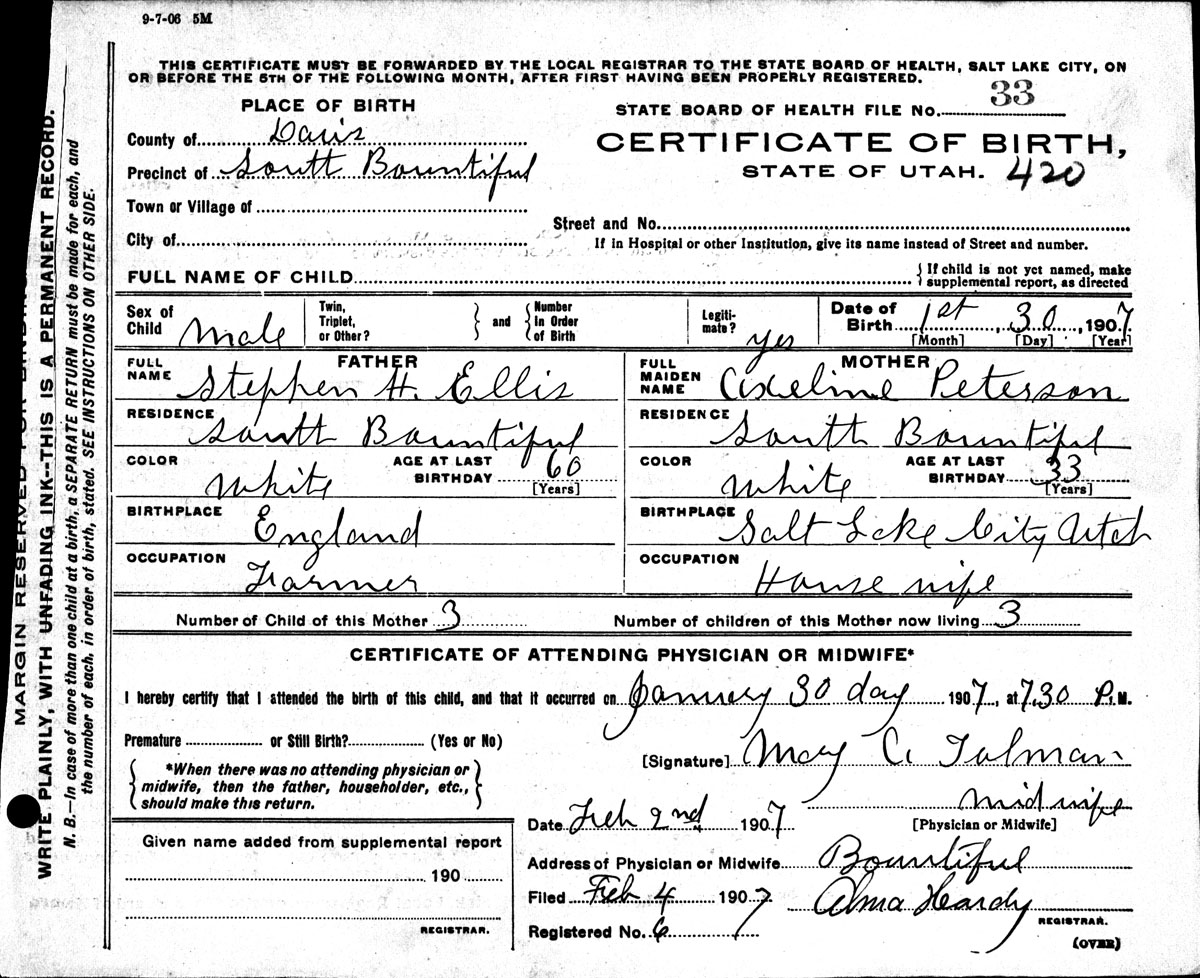 9-7-06 5M
THIS CERTIFICATE MUST BE FORWARDED BY THE LOCAL REGISTRAR TO THE STATE BOARD OF HEALTH, SALT LAKE CITY, ON
OR BEFORE THE 5TH OF THE FOLLOWING MONTH, AFTER FIRST HAVING BEEN PROPERLY REGISTERED.
PLACE OF BIRTH
STATE BOARD OF HEALTH FILE No. 33
County of Davis
CERTIFICATE OF BIRTH,
Precinct of South Bountiful
STATE OF UTAH. 420
Town or Village of
Street and No.
City of
If in Hospital or other Institution, give its name instead of Street and number.
FULL NAME OF CHILD
{ If child is not yet named, make
supplemental report, as directed
Sex of Child Male
Twin, Triplet, or Other? } and { Number In Order of Birth
Legiti-mate? yes
Date of Birth 1st, 30, 1907
[Month] [Day] [Year]
FATHER
MOTHER
FULL NAME Stephen H. Ellis
FULL MAIDEN NAME Axeline Peterson
RESIDENCE South Bountiful
RESIDENCE South Bountiful
COLOR White AGE AT LAST BIRTHDAY 60 [Years]
COLOR White AGE AT LAST BIRTHDAY 33 [Years]
BIRTHPLACE England
BIRTHPLACE Salt Lake City Utah
OCCUPATION Farmer
OCCUPATION House wife
Number of Child of this Mother 3 Number of children of this Mother now living 3
CERTIFICATE OF ATTENDING PHYSICIAN OR MIDWIFE*
I hereby certify that I attended the birth of this child, and that it occurred on January 30 day 1907, at 7.30 P.M.
Premature or Still Birth? (Yes or No)
[Signature] Mary C. Tolman
{ *When there was no attending physician or
midwife, then the father, householder, etc.,
should make this return. }
midwife
[Physician or Midwife]
Date Feb 2nd 1907
Given name added from supplemental report
190
REGISTRAR.
Address of Physician or Midwife Bountiful
Filed Feb 4 1907 Alma Hardy
REGISTRAR.
Registered No. 6
(OVER)
MARGIN RESERVED FOR BINDING
WRITE PLAINLY, WITH UNFADING INK--THIS IS A PERMANENT RECORD.
N. B.—In case of more than one child at a birth, a SEPARATE RETURN must be made for each, and
the number of each, in order of birth, stated. SEE INSTRUCTIONS ON OTHER SIDE.